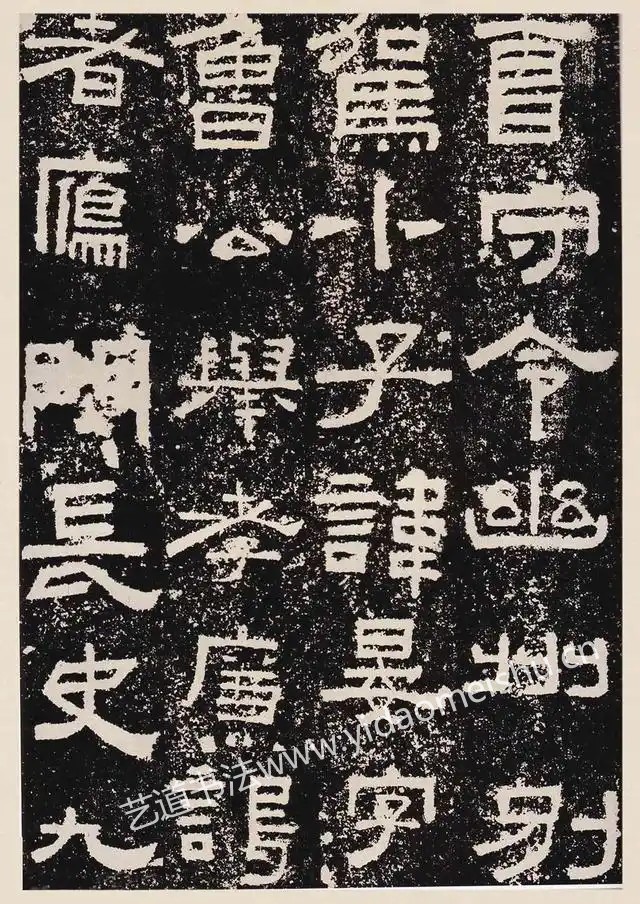 守令幽州別
駕卜子諱晏字
魯公舉孝廉謁
者鴈門長史九
艺道书法www.yidaomeishu.cn